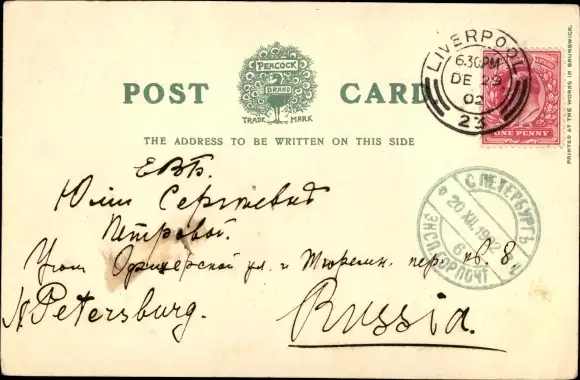 PEACOCK
BRAND
TRADE MARK
POST CARD
THE ADDRESS TO BE WRITTEN ON THIS SIDE
LIVERPOOL
6.30PM
DE 29
02
23
ONE PENNY
PRINTED AT THE WORKS IN BRUNSWICK.
С.ПЕТЕРБУРГЪ
20 XII.1902
6
ЭКСП. ПОЧТ
ЕВБ.
Юліи Сергѣевнѣ
Петровой.
Уголъ Офицерской ул. и Тюремн. пер. кв. 8
St Petersburg.
Russia.